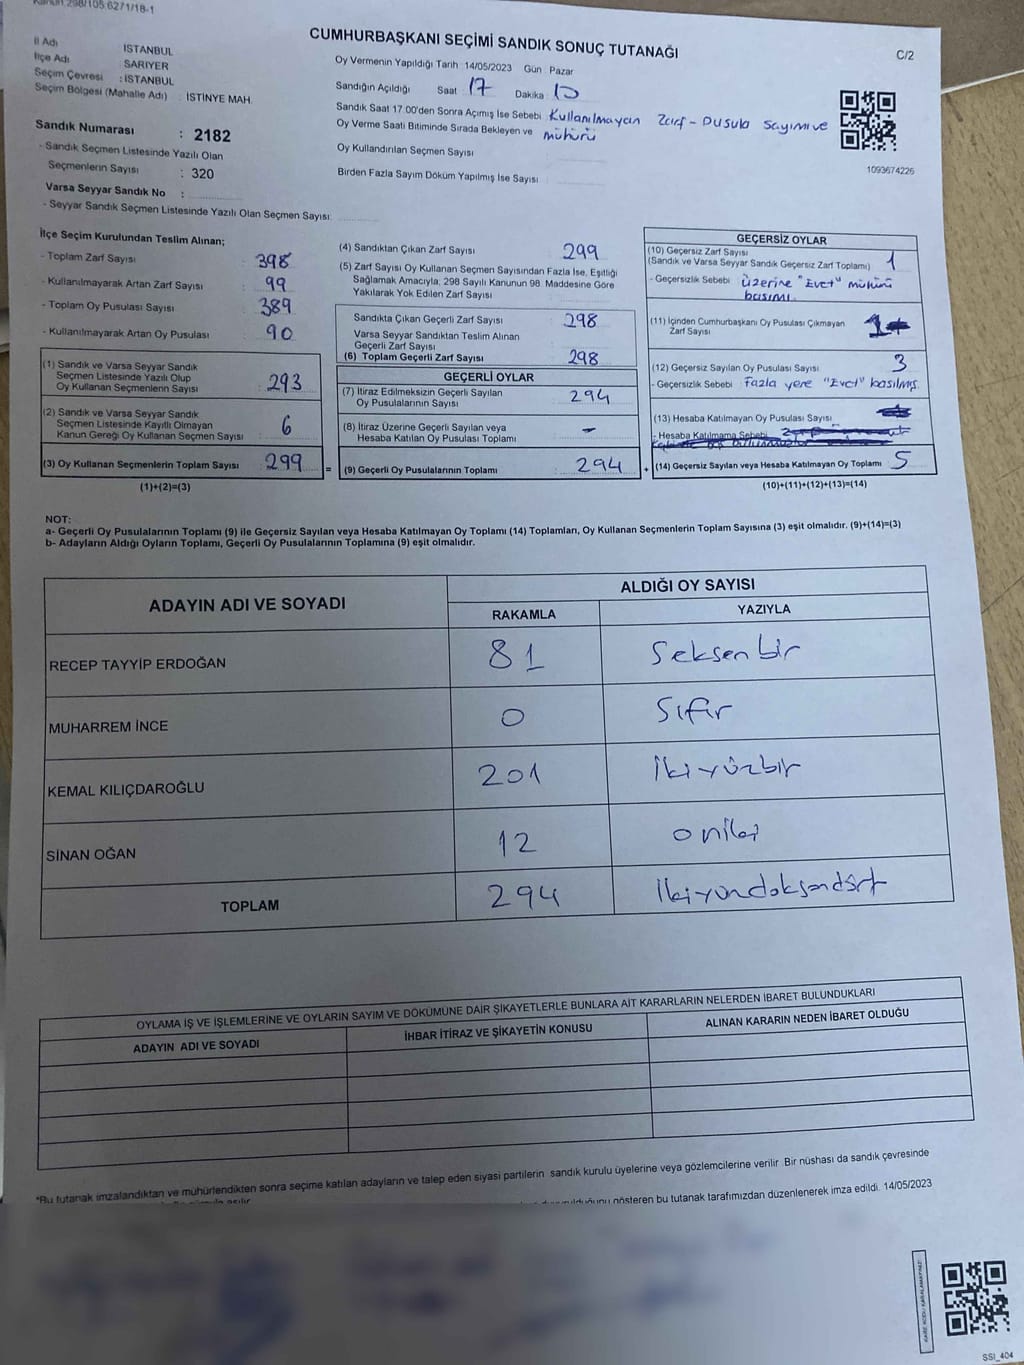 Kanun:298/105.6271/18-1
CUMHURBAŞKANI SEÇİMİ SANDIK SONUÇ TUTANAĞI
C/2
İl Adı İSTANBUL
İlçe Adı : SARIYER
Seçim Çevresi : İSTANBUL
Seçim Bölgesi (Mahalle Adı) : İSTİNYE MAH.
Sandık Numarası : 2182
- Sandık Seçmen Listesinde Yazılı Olan
Seçmenlerin Sayısı : 320
Varsa Seyyar Sandık No :
- Seyyar Sandık Seçmen Listesinde Yazılı Olan Seçmen Sayısı:
Oy Vermenin Yapıldığı Tarih 14/05/2023 Gün Pazar
Sandığın Açıldığı Saat 17 Dakika 10
Sandık Saat 17.00'den Sonra Açılmış İse Sebebi Kullanılmayan Zarf - Pusula sayımı ve
Oy Verme Saati Bitiminde Sırada Bekleyen ve mühürü
Oy Kullandırılan Seçmen Sayısı
Birden Fazla Sayım Döküm Yapılmış İse Sayısı
1093674226
İlçe Seçim Kurulundan Teslim Alınan;
- Toplam Zarf Sayısı 398
- Kullanılmayarak Artan Zarf Sayısı : 99
- Toplam Oy Pusulası Sayısı : 389
- Kullanılmayarak Artan Oy Pusulası 90
(1) Sandık ve Varsa Seyyar Sandık
Seçmen Listesinde Yazılı Olup
Oy Kullanan Seçmenlerin Sayısı : 293
(2) Sandık ve Varsa Seyyar Sandık
Seçmen Listesinde Kayıtlı Olmayan
Kanun Gereği Oy Kullanan Seçmen Sayısı : 6
(3) Oy Kullanan Seçmenlerin Toplam Sayısı : 299 =
(1)+(2)=(3)
(4) Sandıktan Çıkan Zarf Sayısı 299
(5) Zarf Sayısı Oy Kullanan Seçmen Sayısından Fazla İse, Eşitliği
Sağlamak Amacıyla, 298 Sayılı Kanunun 98. Maddesine Göre
Yakılarak Yok Edilen Zarf Sayısı
Sandıkta Çıkan Geçerli Zarf Sayısı : 298
Varsa Seyyar Sandıktan Teslim Alınan
Geçerli Zarf Sayısı
(6) Toplam Geçerli Zarf Sayısı : 298
GEÇERLİ OYLAR
(7) İtiraz Edilmeksizin Geçerli Sayılan
Oy Pusulalarının Sayısı : 294
(8) İtiraz Üzerine Geçerli Sayılan veya
Hesaba Katılan Oy Pusulası Toplamı : -
(9) Geçerli Oy Pusulalarının Toplamı : 294 +
GEÇERSİZ OYLAR
(10) Geçersiz Zarf Sayısı
(Sandık ve Varsa Seyyar Sandık Geçersiz Zarf Toplamı) 1
- Geçersizlik Sebebi : üzerine "Evet" mühürü
basımı.
(11) İçinden Cumhurbaşkanı Oy Pusulası Çıkmayan
Zarf Sayısı 1
(12) Geçersiz Sayılan Oy Pusulası Sayısı 3
- Geçersizlik Sebebi fazla yere "Evet" basılmış
(13) Hesaba Katılmayan Oy Pusulası Sayısı
- Hesaba Katılmama Sebebi
(14) Geçersiz Sayılan veya Hesaba Katılmayan Oy Toplamı 5
(10)+(11)+(12)+(13)=(14)
NOT:
a- Geçerli Oy Pusulalarının Toplamı (9) ile Geçersiz Sayılan veya Hesaba Katılmayan Oy Toplamı (14) Toplamları, Oy Kullanan Seçmenlerin Toplam Sayısına (3) eşit olmalıdır. (9)+(14)=(3)
b- Adayların Aldığı Oyların Toplamı, Geçerli Oy Pusulalarının Toplamına (9) eşit olmalıdır.
ADAYIN ADI VE SOYADI ALDIĞI OY SAYISI
RAKAMLA YAZIYLA
RECEP TAYYİP ERDOĞAN 81 Seksenbir
MUHARREM İNCE 0 Sıfır
KEMAL KILIÇDAROĞLU 201 İkiyüzbir
SİNAN OĞAN 12 oniki
TOPLAM 294 İkiyüzdoksandört
OYLAMA İŞ VE İŞLEMLERİNE VE OYLARIN SAYIM VE DÖKÜMÜNE DAİR ŞİKAYETLERLE BUNLARA AİT KARARLARIN NELERDEN İBARET BULUNDUKLARI
ADAYIN ADI VE SOYADI İHBAR İTİRAZ VE ŞİKAYETİN KONUSU ALINAN KARARIN NEDEN İBARET OLDUĞU
*Bu tutanak imzalandıktan ve mühürlendikten sonra seçime katılan adayların ve talep eden siyasi partilerin sandık kurulu üyelerine veya gözlemcilerine verilir. Bir nüshası da sandık çevresinde
gösteren bu tutanak tarafımızdan düzenlenerek imza edildi. 14/05/2023
SSI_404